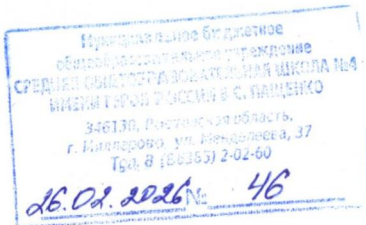 Муниципальное бюджетное
общеобразовательное учреждение
СРЕДНЯЯ ОБЩЕОБРАЗОВАТЕЛЬНАЯ ШКОЛА №4
ИМЕНИ ГЕРОЯ РОССИИ В С. ПАЩЕНКО
346130, Ростовская область,
г. Миллерово ул. Менделеева, 37
Тел. 8 (86385) 2-02-60
26.02.2026 № 46